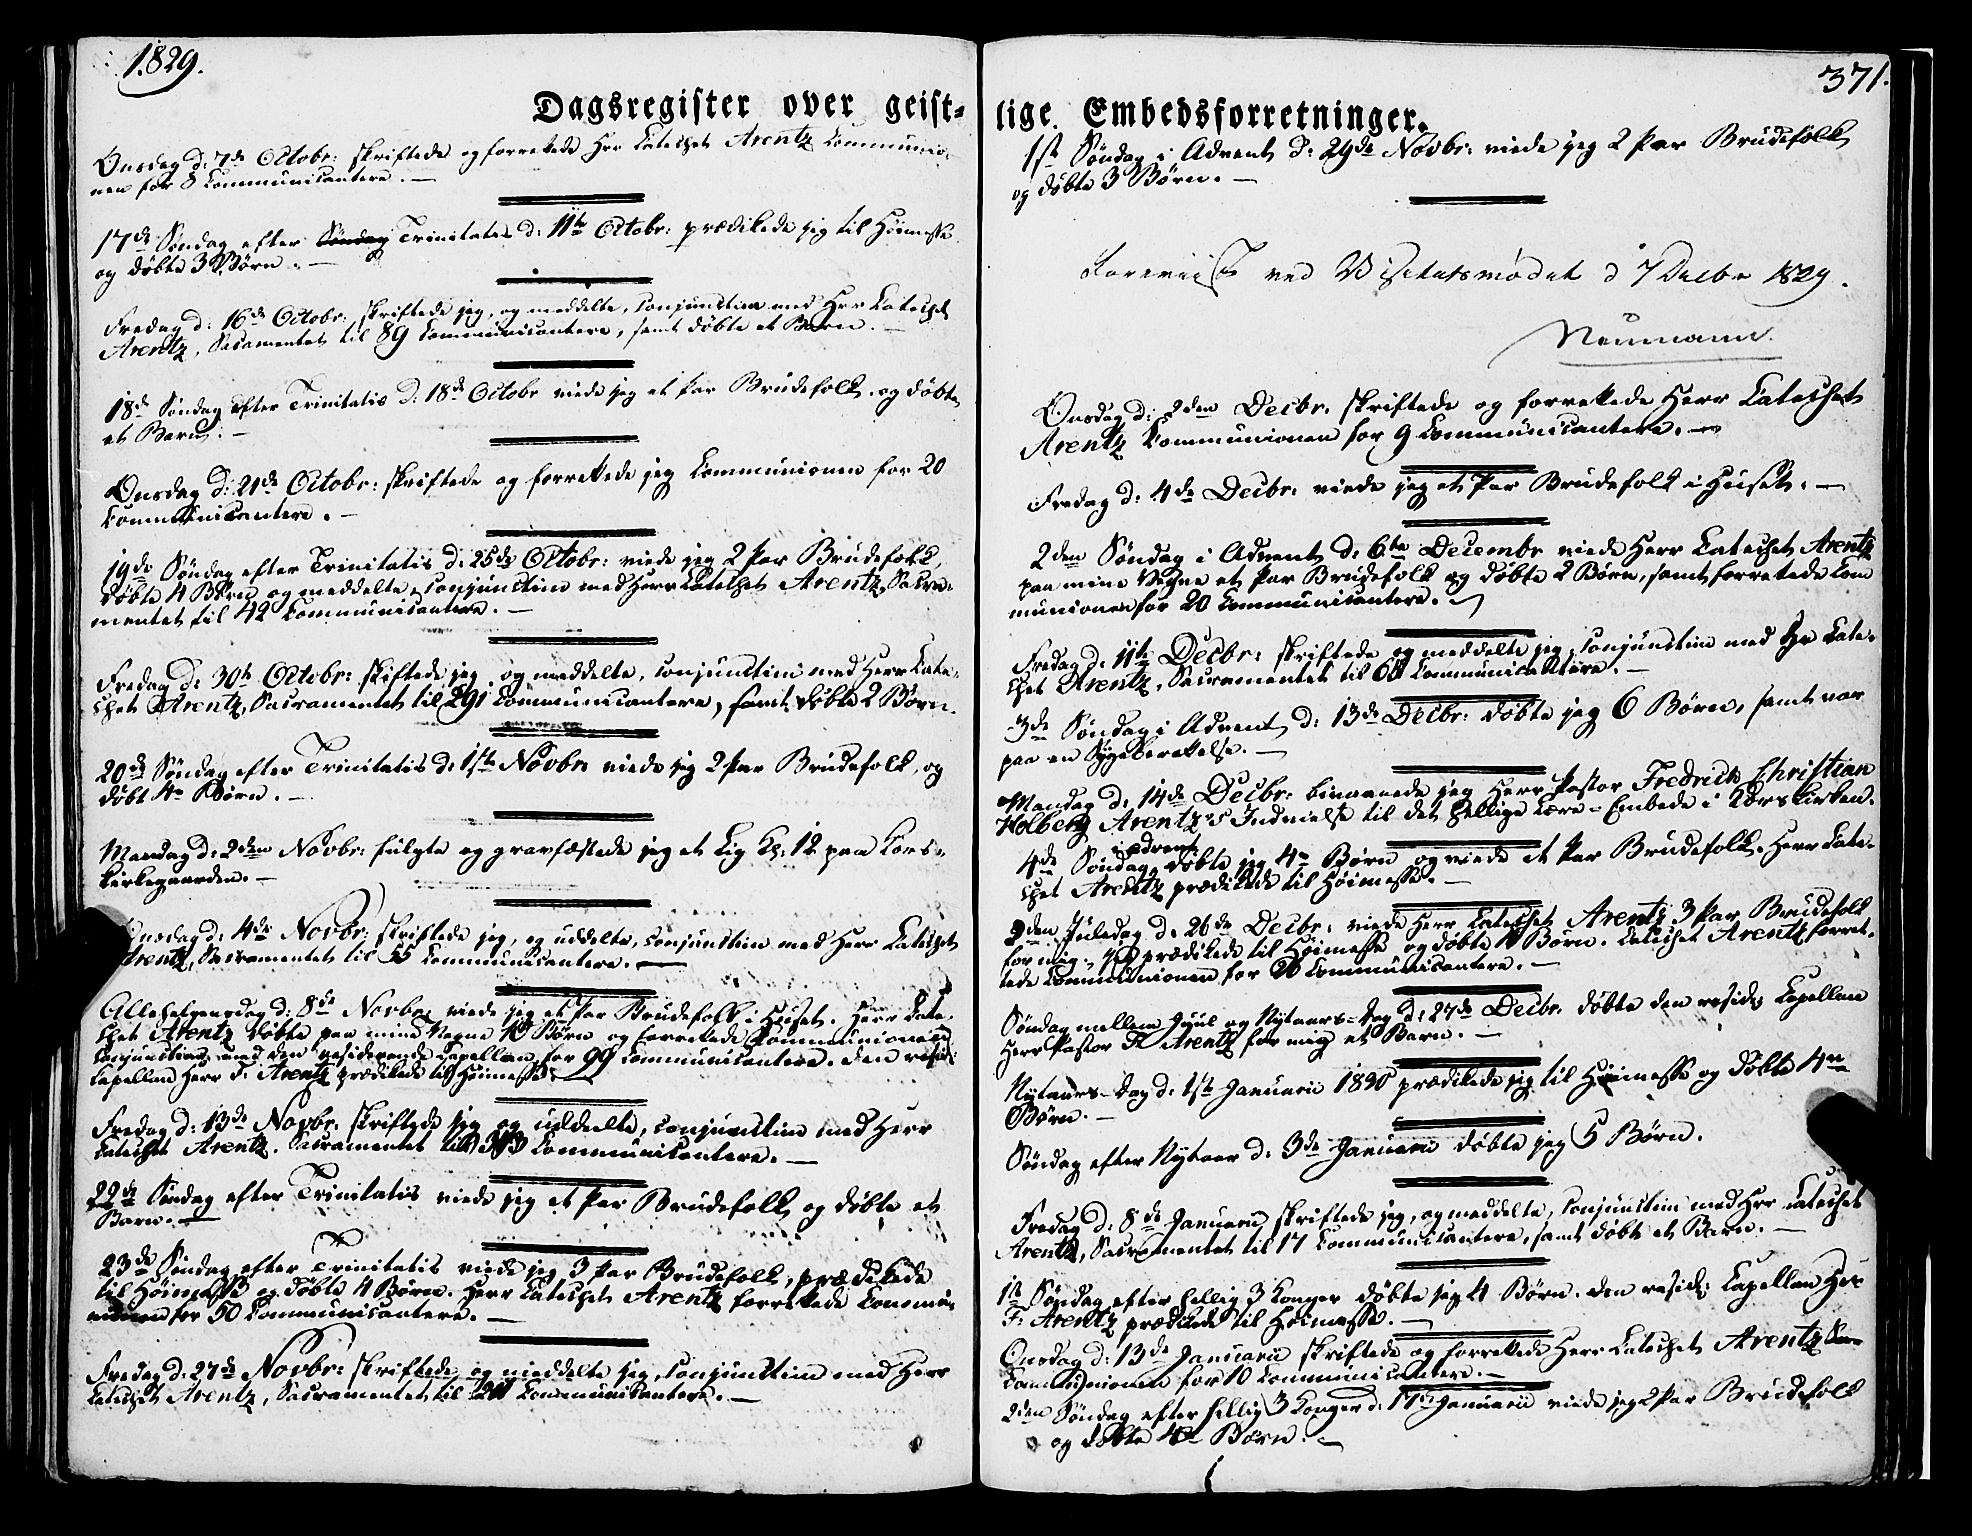 1829.
Dagsregister over geist-
Onsdag d: 7de Octobr: skriftede og forrettede Hrr Catechet Arentz Communio-
nen for 8 Communicantere. —
17de Søndag efter Søndag Trinitatis d: 11te Octobr: prædikede jeg til Høimesse
og døbte 3 Børn. —
Fredag d: 16de Octobr: skriftede jeg, og meddelte, conjunctim med Hrr Catechet
Arentz, Sacramentet til 89 Communicantere, samt døbte et Barn. —
18de Søndag efter Trinitatis d: 18de Octobr viede jeg et Par Brudefolk og døbte
et Barn. —
Onsdag d: 21de Octobr: skriftede og forrettede jeg Communionen for 20
Communicantere. —
19de Søndag efter Trinitatis d: 25de Octobr: viede jeg 2 Par Brudefolk,
døbte 4 Børn og meddelte, conjunctim med Herr Catechet Arentz, Sacra-
mentet til 42 Communicantere. —
Fredag d: 30te Octobr: skiftede jeg, og meddelte, conjunctim med Herr Cate-
chet Arentz, Sacramentet til 291 Communicantere, samt døbte 2 Børn.
20de Søndag efter Trinitatis d: 1ste Novbr viede jeg 2 Par Brudefolk, og
døbt 4re Børn. —
Mandag d: 2den Novbr: fulgte og gravfæstede jeg et Lig Kl: 12 paa Kors-
kirkegaarden. —
Onsdag d: 4de Novbr: skriftede jeg, og uddelte, conjunctim med Herr Catechet
Arentz, Sacramentet til 55 Communicantere. —
Allehelgensdag d: 8de Novbr: viede jeg et Par Brudefolk i Huset. Herr Cate-
chet Arentz døbte paa mine Vegne Børn og forrettede Communionen
conjunctim med den residerende Capellan for 99 Communicantere. Den resid:
Capellan Herr F. Arentz prædikede til Høimesse. —
Fredag d: 13de Novbr. skriftede jeg og uddelte, conjunctim med Herr
Catechet Arentz. Sacramentet til Communicantere. —
22de Søndag efter Trinitatis viede jeg et Par Brudefolk og døbte et
Barn. —
23de Søndag efter Trinitatis viede jeg 3 Par Brudefolk, prædikede
til Høimesse og døbte 4 Børn. Herr Catechet Arentz forrettede Commu-
nionen for 50 Communicantere. —
Fredag d: 27de Novbr: skriftede og meddelte jeg, conjunctim med Herr
Catechet Arentz, Sacramentet til Communicantere. —
371.
lige Embedsforretninger.
1ste Søndag i Advent d: 29de Novbr: viede jeg 2 Par Brudefolk
og døbte 3 Børn. —
Foreviist ved Visitatsmødet d 7 Decbr 1829.
Neumann.
Onsdag d: 2den Decbr. skriftede og forrettede Herr Catechet
Arentz Communionen for 9 Communicantere. —
Fredag d: 4de Decbr: viede jeg et Par Brudefolk i Huset. —
2den Søndag i Advent d: 6te Decembr viede Herr Catechet Arentz
paa mine Vegne et Par Brudefolk og døbte 2 Børn, samt forrettede Com
munionen for 20 Communicantere.
Fredag d: 11te Decbr: skriftede og meddelte jeg, conjunctim med Hr Cate-
chet Arentz, Sacramentet til Communicantere. —
3de Søndag i Advent d: 13de Decbr: døbte jeg 6 Børn, samt var
paa en Sygeberettelse. —
Mandag d: 14de Decbr: bivaanede jeg Herr Pastor Fredrich Christian
Holberg Arentz's Indvielse til det hellige Lære-Embede i Korskirken.
4de Søndag i Advent døbte jeg 4re Børn og viede et Par Brudefolk. Herr Cate-
chet Arentz prædikede til Høimesse. —
2den Juledag d: 26de Decbr: viede Herr Catechet Arentz 3 Par Brudefolk
for mig. Jeg prædikede til Høimesse og døbte Børn. Catechet Arentz forret-
tede Communionen for Communicantere. —
Søndag mellem Juul og Nytaars-Dag d: 27de Decbr. døbte den resid: Capellan
Herr Pastor F. Arentz for mig et Barn. —
Nytaars-Dag d: 1ste Januarii 1830 prædikede jeg til Høimesse og døbte 4re
Børn. —
Søndag efter Nytaar d: 3de Januarii døbte jeg 5 Børn.
Fredag d: 8de Januarii skriftede jeg, og meddelte, conjunctim med Hrr Catechet
Arentz, Sacramentet til 17 Communicantere, samt døbt et Barn. —
1ste Søndag efter hellig 3 Konger døbte jeg 4 Børn. Den resid: Capellan Her
F: Arentz prædikede til Høimesse. —
Onsdag d: 13de Januarii skriftede og forrettede Herr Catechet Arentz
Communionen for 10 Communicantere. —
2den Søndag efter hellig 3 Konger d: 17de Januarii viede jeg 2 Par Brudefolk
og døbte 4re Børn. —